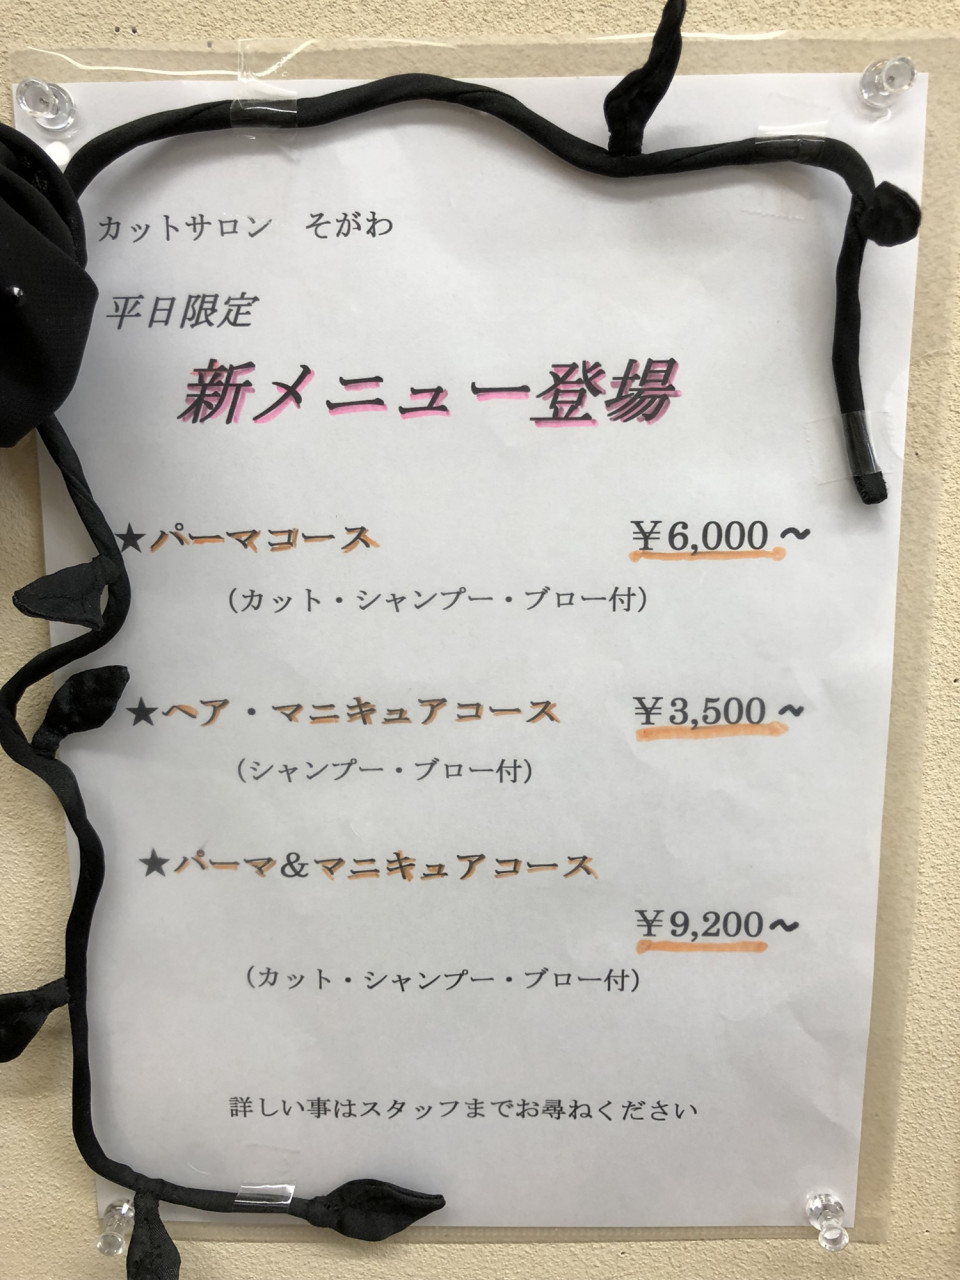 カットサロン　そがわ
平日限定
新メニュー登場
★パーマコース　¥6,000～
（カット・シャンプー・ブロー付）
★ヘア・マニキュアコース　¥3,500～
（シャンプー・ブロー付）
★パーマ＆マニキュアコース
¥9,200～
（カット・シャンプー・ブロー付）
詳しい事はスタッフまでお尋ねください